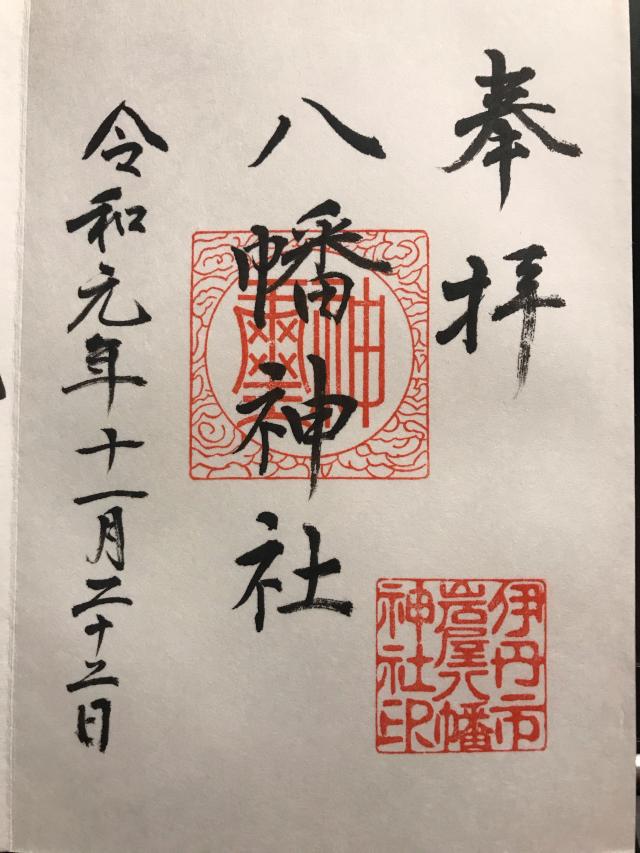 奉拝
八幡神社
神璽
令和元年十一月二十二日
伊丹市
岩屋八幡
神社印